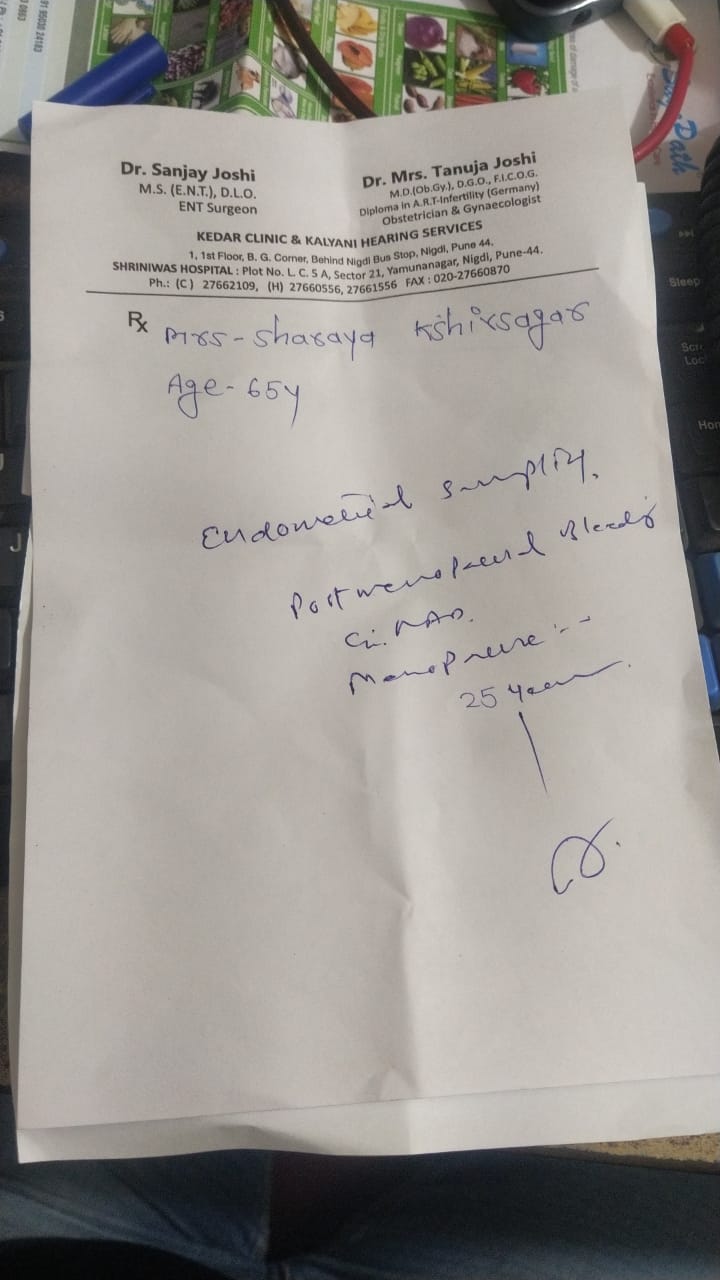 Dr. Sanjay Joshi
M.S. (E.N.T.), D.L.O.
ENT Surgeon
Dr. Mrs. Tanuja Joshi
M.D.(Ob.Gy.), D.G.O., F.I.C.O.G.
Diploma in A.R.T-Infertility (Germany)
Obstetrician & Gynaecologist
KEDAR CLINIC & KALYANI HEARING SERVICES
1, 1st Floor, B. G. Corner, Behind Nigdi Bus Stop, Nigdi, Pune 44.
SHRINIWAS HOSPITAL : Plot No. L. C. 5 A, Sector 21, Yamunanagar, Nigdi, Pune-44.
Ph.: (C) 27662109, (H) 27660556, 27661556 FAX : 020-27660870
Rx Mrs - Sharaya Kshirsagar
Age - 65y
Endometrial Sampling.
Postmenopausal Bleeding
Menopause :--
25 years
Sleep
Path